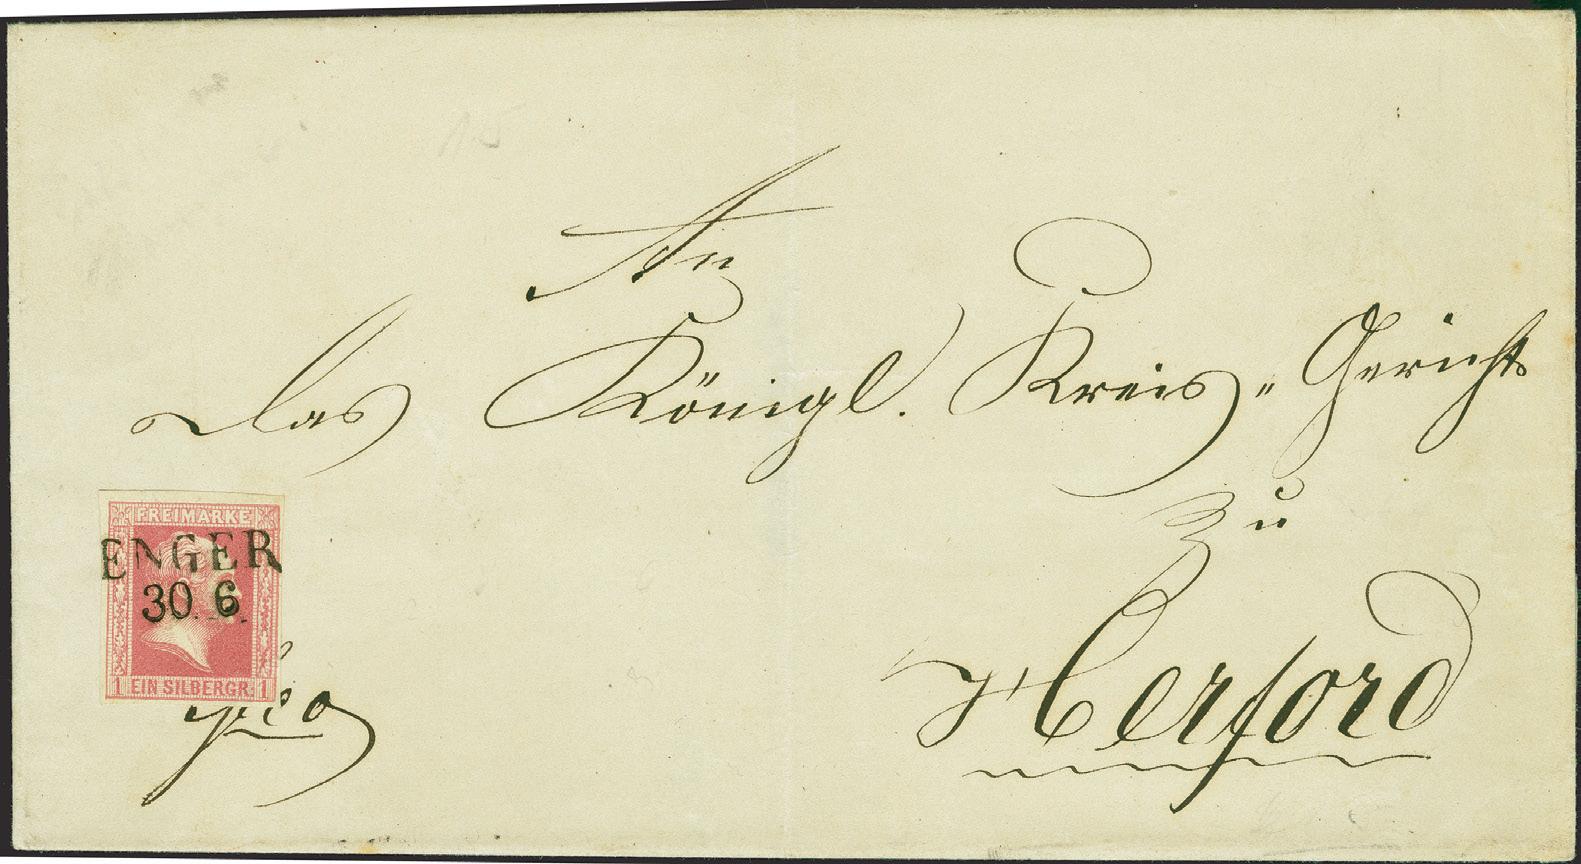 An
das Königl. Kreis-Gericht
zu
Herford
FREIMARKE
ENGER
30 6
1 EIN SILBERGR. 1